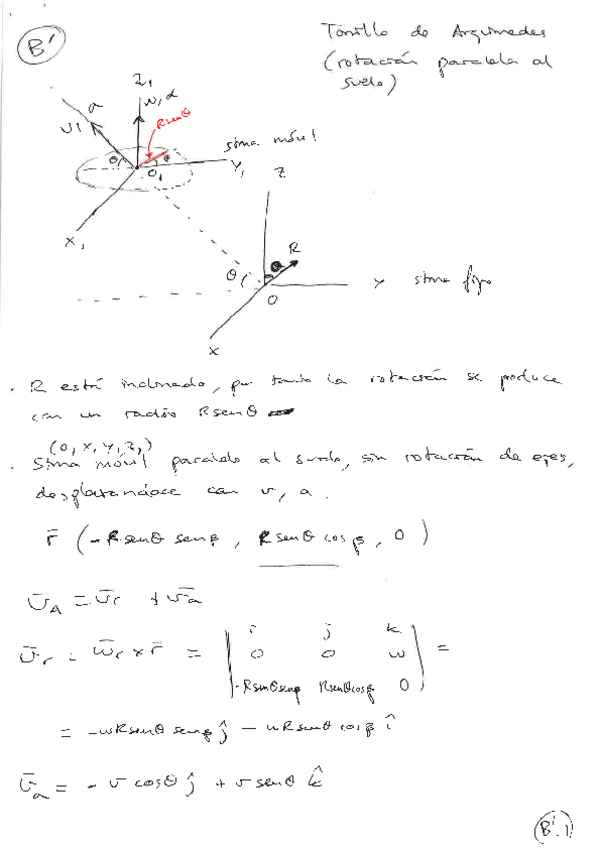 B'
Tornillo de Arquímedes
(rotación paralela al
suelo)
Z₁
a
v,
w, α
R senθ
θ
φ
O₁
Y₁
X₁
stma móvil
Z
R
θ
O
Y
stma fijo
X
. R está inclinado, por tanto la rotación se produce
con un radio R senθ
(O, X, Y, Z,)
. Stma móvil paralelo al suelo, sin rotación de ejes,
desplazándose con v, a.
r̄ (-R senθ senφ, R senθ cosφ, 0)
v̄_A = v̄_r + v̄_a
v̄_r = w̄_r × r̄ = | i j k |
| 0 0 w | =
| -R senθ senφ R senθ cosφ 0 |
= -wR senθ senφ ĵ - wR senθ cosφ î
v̄_a = - v cosθ ĵ + v senθ k̂
B'.1